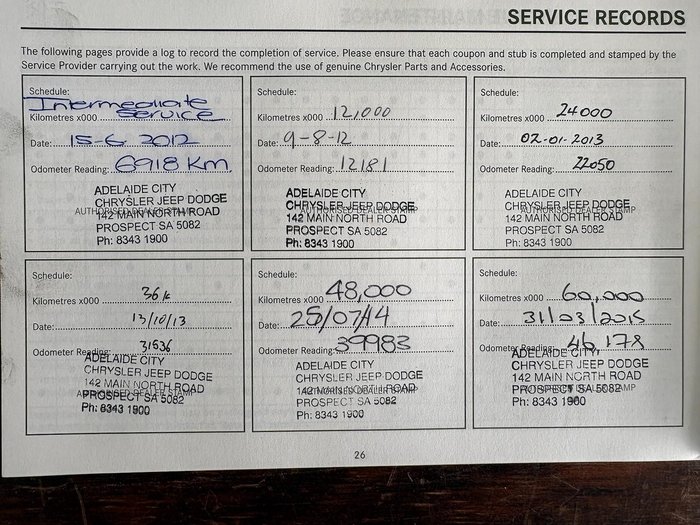 SERVICE RECORDS
The following pages provide a log to record the completion of service. Please ensure that each coupon and stub is completed and stamped by the
Service Provider carrying out the work. We recommend the use of genuine Chrysler Parts and Accessories.
Schedule:
Intermediate
Kilometres x000 Service
Date: 15-6 2012
Odometer Reading: 6918 Km
AUTHORISED DEALER STAMP
ADELAIDE CITY
CHRYSLER JEEP DODGE
142 MAIN NORTH ROAD
PROSPECT SA 5082
Ph: 8343 1900
Schedule:
Kilometres x000 12,000
Date: 9-8-12
Odometer Reading: 12181
AUTHORISED DEALER STAMP
ADELAIDE CITY
CHRYSLER JEEP DODGE
142 MAIN NORTH ROAD
PROSPECT SA 5082
Ph: 8343 1900
Schedule:
Kilometres x000 24000
Date: 02-01-2013
Odometer Reading: 22050
AUTHORISED DEALER STAMP
ADELAIDE CITY
CHRYSLER JEEP DODGE
142 MAIN NORTH ROAD
PROSPECT SA 5082
Ph: 8343 1900
Schedule:
Kilometres x000 36k
Date: 13/10/13
Odometer Reading: 31536
ADELAIDE CITY
CHRYSLER JEEP DODGE
142 MAIN NORTH ROAD
AUTHORISED DEALER STAMP
PROSPECT SA 5082
Ph: 8343 1900
Schedule:
Kilometres x000 48,000
Date: 25/07/14
Odometer Reading: 39983
ADELAIDE CITY
CHRYSLER JEEP DODGE
142 MAIN NORTH ROAD
AUTHORISED DEALER STAMP
PROSPECT SA 5082
Ph: 8343 1900
Schedule:
Kilometres x000 60,000
Date: 31/03/2015
Odometer Reading: 46178
ADELAIDE CITY
CHRYSLER JEEP DODGE
142 MAIN NORTH ROAD
AUTHORISED DEALER STAMP
PROSPECT SA 5082
Ph: 8343 1900
26